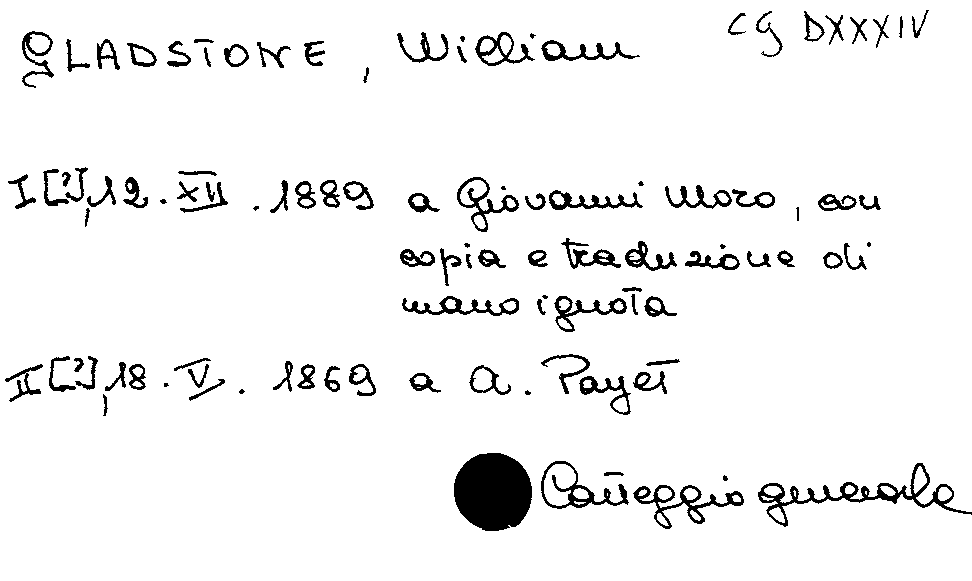 GLADSTONE, William CG DXXXIV
I [?], 12. XII. 1889 a Giovanni Moro, con
copia e traduzione di
mano ignota
II [?], 18. V. 1869 a A. Payet
Carteggio generale